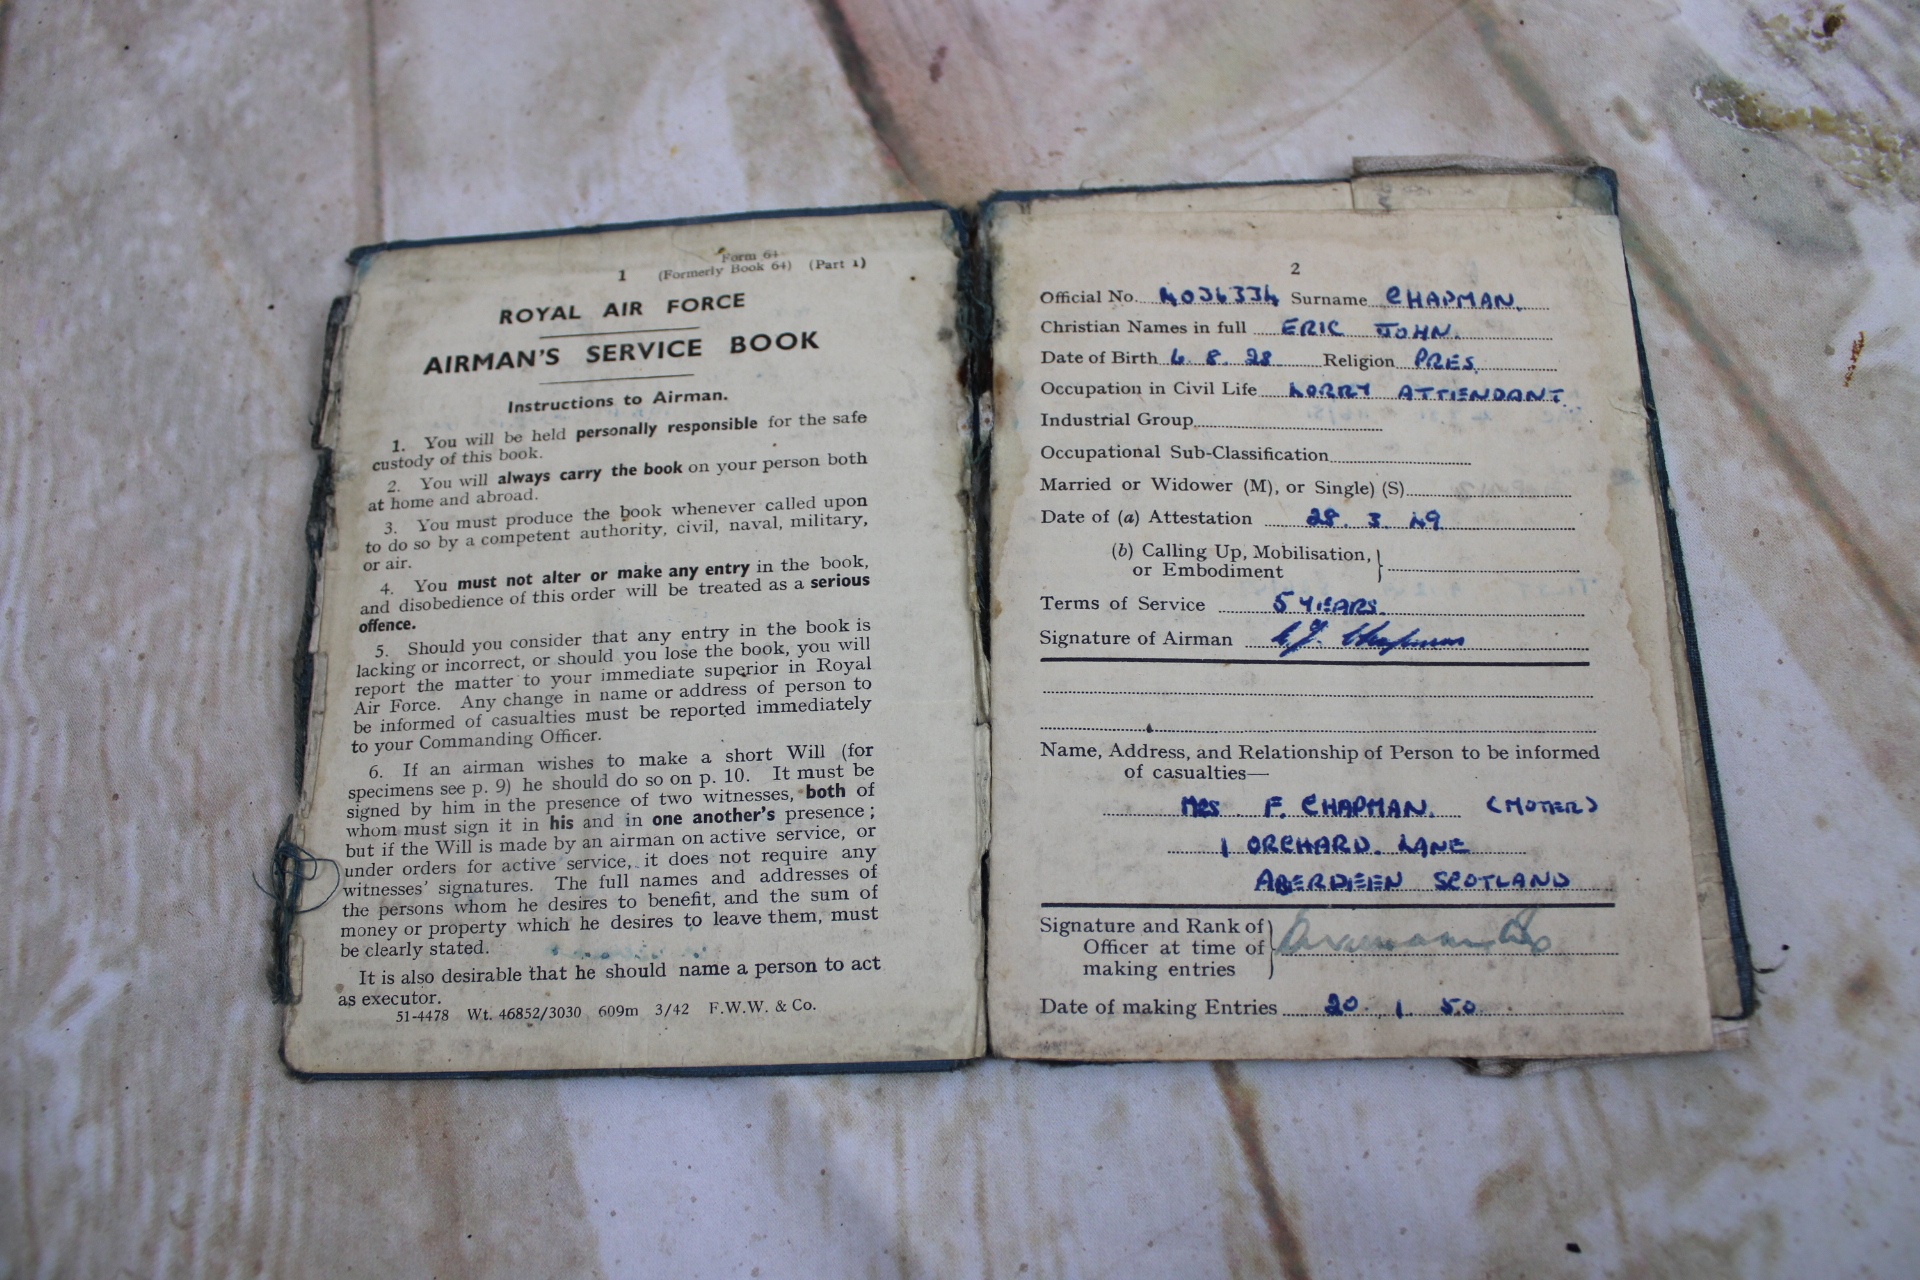 Form 64
1 (Formerly Book 64) (Part 1)
ROYAL AIR FORCE
AIRMAN'S SERVICE BOOK
Instructions to Airman.
1. You will be held personally responsible for the safe
custody of this book.
2. You will always carry the book on your person both
at home and abroad.
3. You must produce the book whenever called upon
to do so by a competent authority, civil, naval, military,
or air.
4. You must not alter or make any entry in the book,
and disobedience of this order will be treated as a serious
offence.
5. Should you consider that any entry in the book is
lacking or incorrect, or should you lose the book, you will
report the matter to your immediate superior in Royal
Air Force. Any change in name or address of person to
be informed of casualties must be reported immediately
to your Commanding Officer.
6. If an airman wishes to make a short Will (for
specimens see p. 9) he should do so on p. 10. It must be
signed by him in the presence of two witnesses, both of
whom must sign it in his and in one another's presence ;
but if the Will is made by an airman on active service, or
under orders for active service, it does not require any
witnesses' signatures. The full names and addresses of
the persons whom he desires to benefit, and the sum of
money or property which he desires to leave them, must
be clearly stated.
It is also desirable that he should name a person to act
as executor.
51-4478 Wt. 46852/3030 609m 3/42 F.W.W. & Co.
2
Official No. 4036334 Surname CHAPMAN.
Christian Names in full ERIC JOHN.
Date of Birth 6. 8. 28 Religion PRES
Occupation in Civil Life LORRY ATTENDANT.
Industrial Group
Occupational Sub-Classification
Married or Widower (M), or Single) (S)
Date of (a) Attestation 28. 3. 49
(b) Calling Up, Mobilisation,
or Embodiment
Terms of Service 5 YEARS.
Signature of Airman E.J. Chapman
Name, Address, and Relationship of Person to be informed
of casualties—
MRS F. CHAPMAN. (MOTER)
1 ORCHARD. LANE
ABERDEEN SCOTLAND
Signature and Rank of
Officer at time of
making entries
Date of making Entries 20. 1. 50